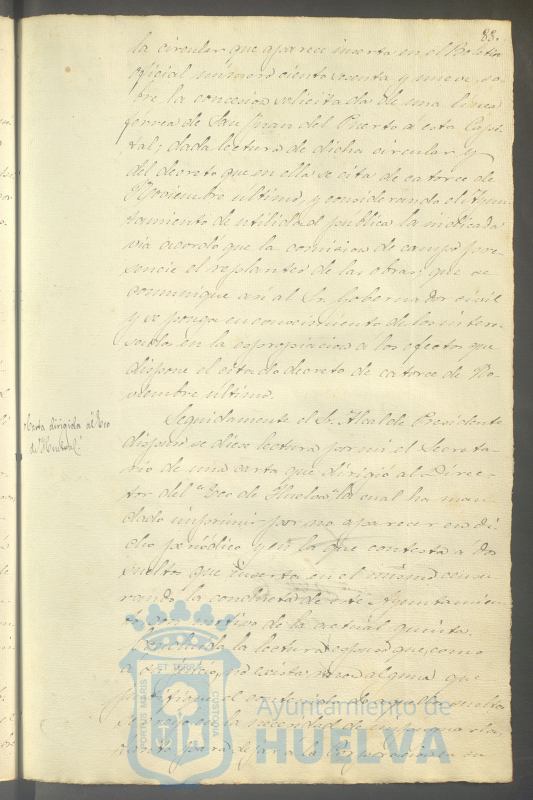 88.
la circular que aparece inserta en el Boletin
oficial número ciento sesenta y nueve, so-
bre la concesion solicitada de una linea
ferrea de San Juan del Puerto á esta Capi-
tal; dada lectura de dicha circular y
del decreto que en ella se cita de catorce de
Noviembre último, y considerando el Ayun-
tamiento de utilidad publica la indicada
via acordó que la comision de campo pre-
sencie el replanteo de las obras; que se
comunique asi al Sr. Gobernador civil
y se ponga en conocimiento de los intere-
sados en la espropiacion á los efectos que
dispone el citado decreto de catorce de No-
viembre último.
Carta dirigida al Eco
de Huelva.
Seguidamente el Sr. Alcalde Presidente
dispuso se diese lectura por mi el Secreta-
rio de una carta que dirigió al Direc-
tor del "Eco de Huelva" la cual ha man-
dado imprimir por no aparecer en di-
cho periódico y en la que contesta a dos
sueltos que inserta en el mismo censu-
rando la conducta de este Ayuntamien-
to con motivo de la actual quinta.
la lectura espuso que, como
razon alguna que
la necesidad de
para dejar
PORTUS MARIS ET TERRÆ CUSTODIA
Ayuntamiento de
HUELVA